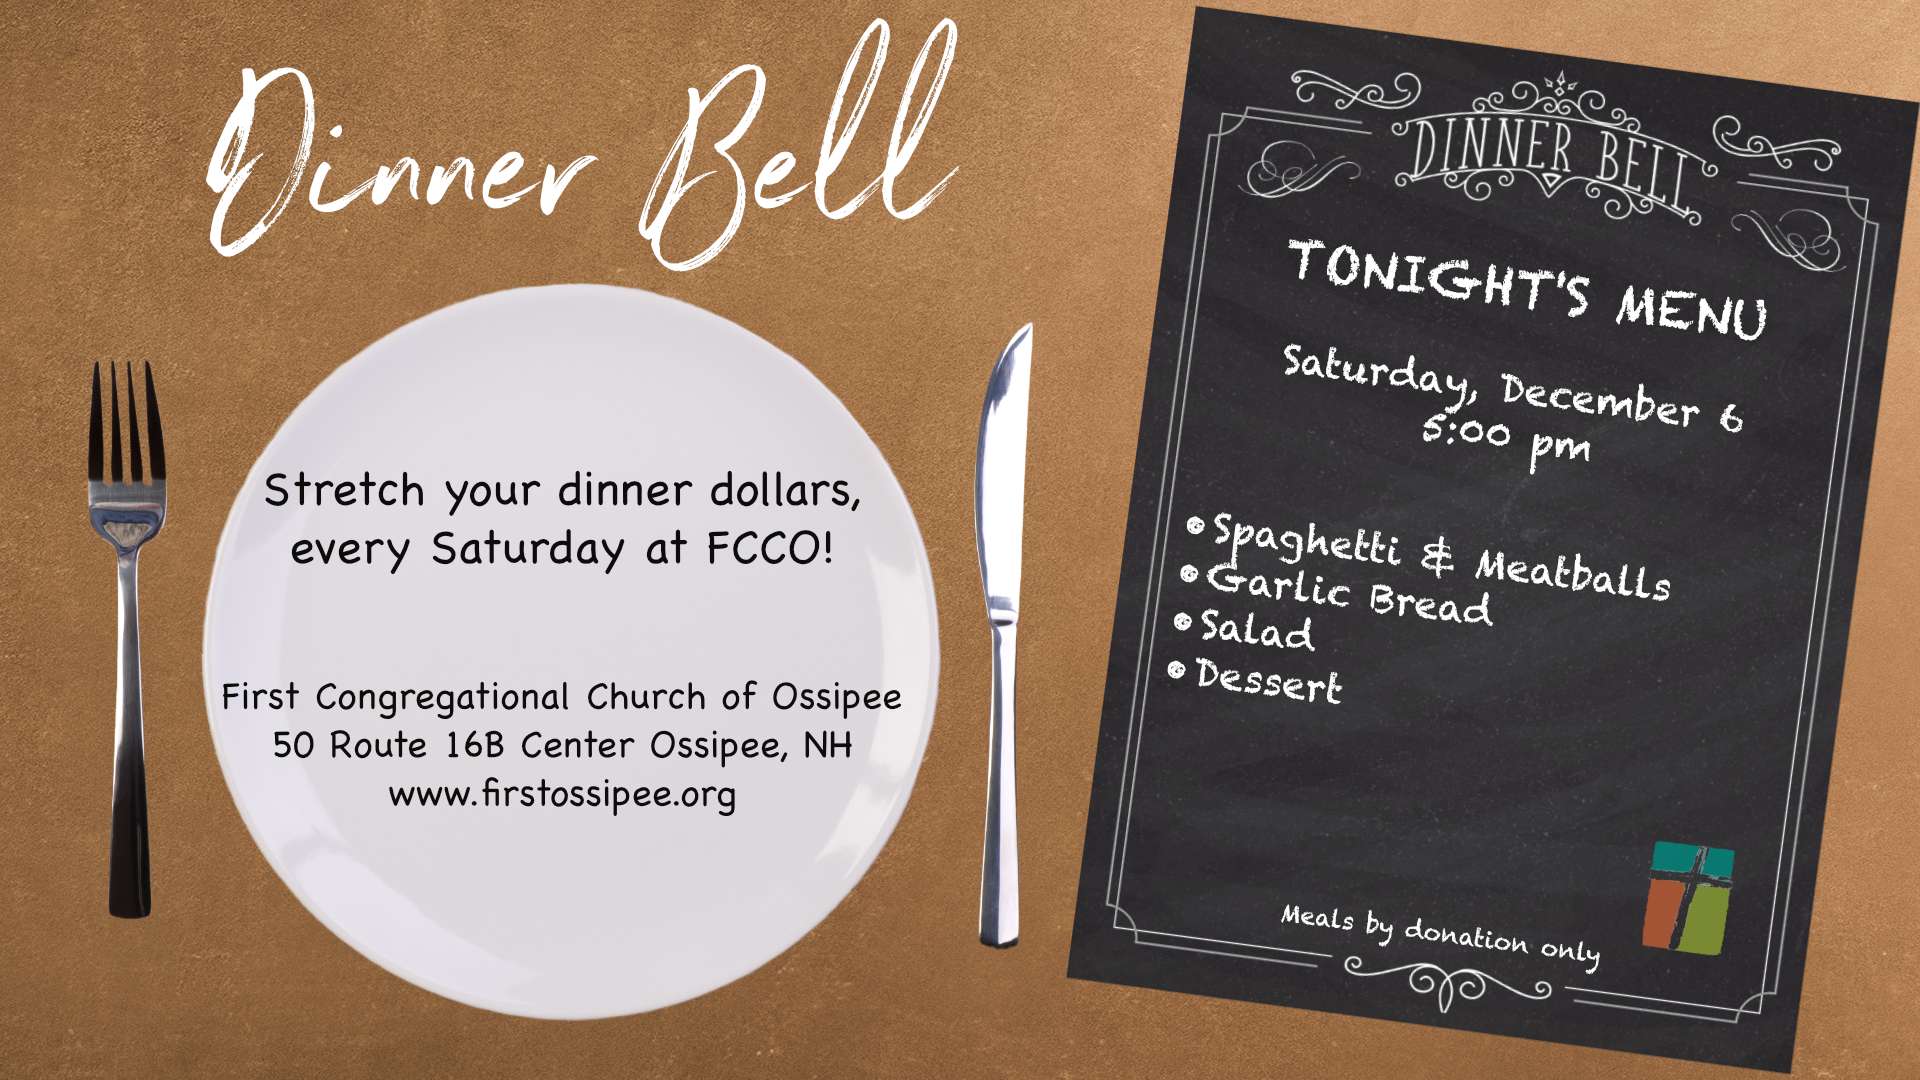 Dinner Bell
Stretch your dinner dollars,
every Saturday at FCCO!
First Congregational Church of Ossipee
50 Route 16B Center Ossipee, NH
www.firstossipee.org
DINNER BELL
TONIGHT'S MENU
Saturday, December 6
5:00 pm
• Spaghetti & Meatballs
• Garlic Bread
• Salad
• Dessert
Meals by donation only